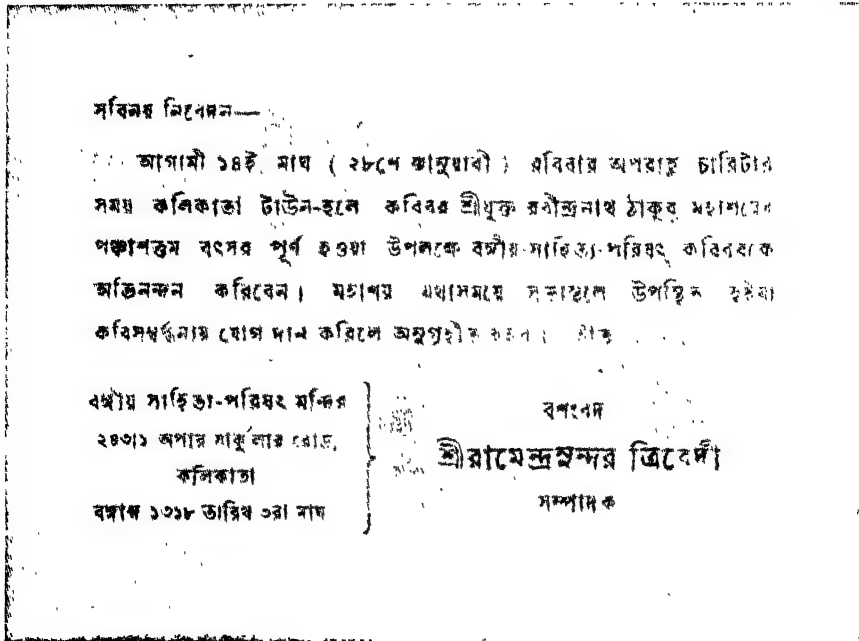 সবিনয় নিবেদন—
আগামী ১৪ই মাঘ ( ২৮শে জানুয়ারী ) রবিবার অপরাহ্ণ চারিটার
সময় কলিকাতা টাউন-হলে কবিবর শ্রীযুক্ত রবীন্দ্রনাথ ঠাকুর মহাশয়ের
পঞ্চাশত্তম বৎসর পূর্ণ হওয়া উপলক্ষে বঙ্গীয়-সাহিত্য-পরিষৎ কবিবরকে
অভিনন্দন করিবেন। মহাশয় যথাসময়ে সভাস্থলে উপস্থিত হইয়া
কবিসম্বর্দ্ধনায় যোগ দান করিলে অনুগৃহীত হইব। ইতি
বঙ্গীয় সাহিত্য-পরিষৎ মন্দির
২৪৩/১ অপার সার্কুলার রোড,
কলিকাতা
বঙ্গাব্দ ১৩১৮ তারিখ ৩রা মাঘ
বশংবদ
শ্রীরামেন্দ্রসুন্দর ত্রিবেদী
সম্পাদক